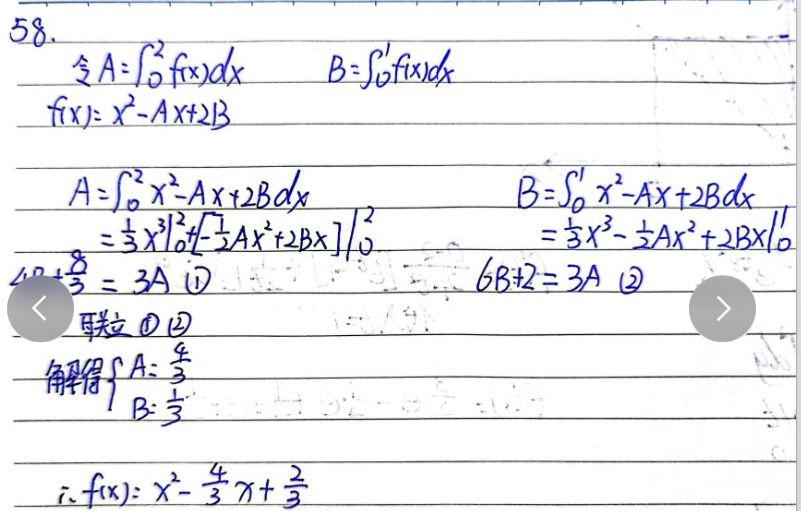 58.
令 A=∫₀² f(x)dx B=∫₀¹ f(x)dx
f(x)= x²-Ax+2B
A=∫₀² x²-Ax+2Bdx B=∫₀¹ x²-Ax+2Bdx
=1/3x³|₀²+[-1/2Ax²+2Bx]|₀² =1/3x³-1/2Ax²+2Bx|₀¹
+8/3 = 3A ① 6B+2=3A ②
联立 ①②
解得{A=4/3
B=1/3
∴ f(x)= x²-4/3x+2/3